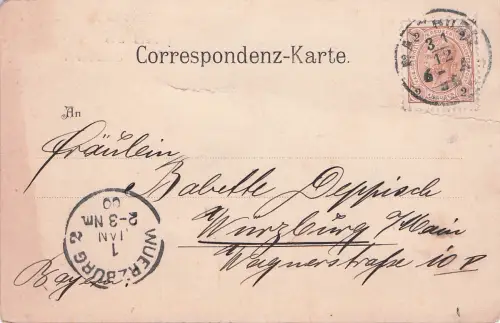 Correspondenz-Karte.
31
12
2
2
An
Fräulein
Babette Deppisch
Würzburg / Main
Wagnerstraße 10 P
Bayern
WUERZBURG 2
1
JAN
00
2-3 Nm